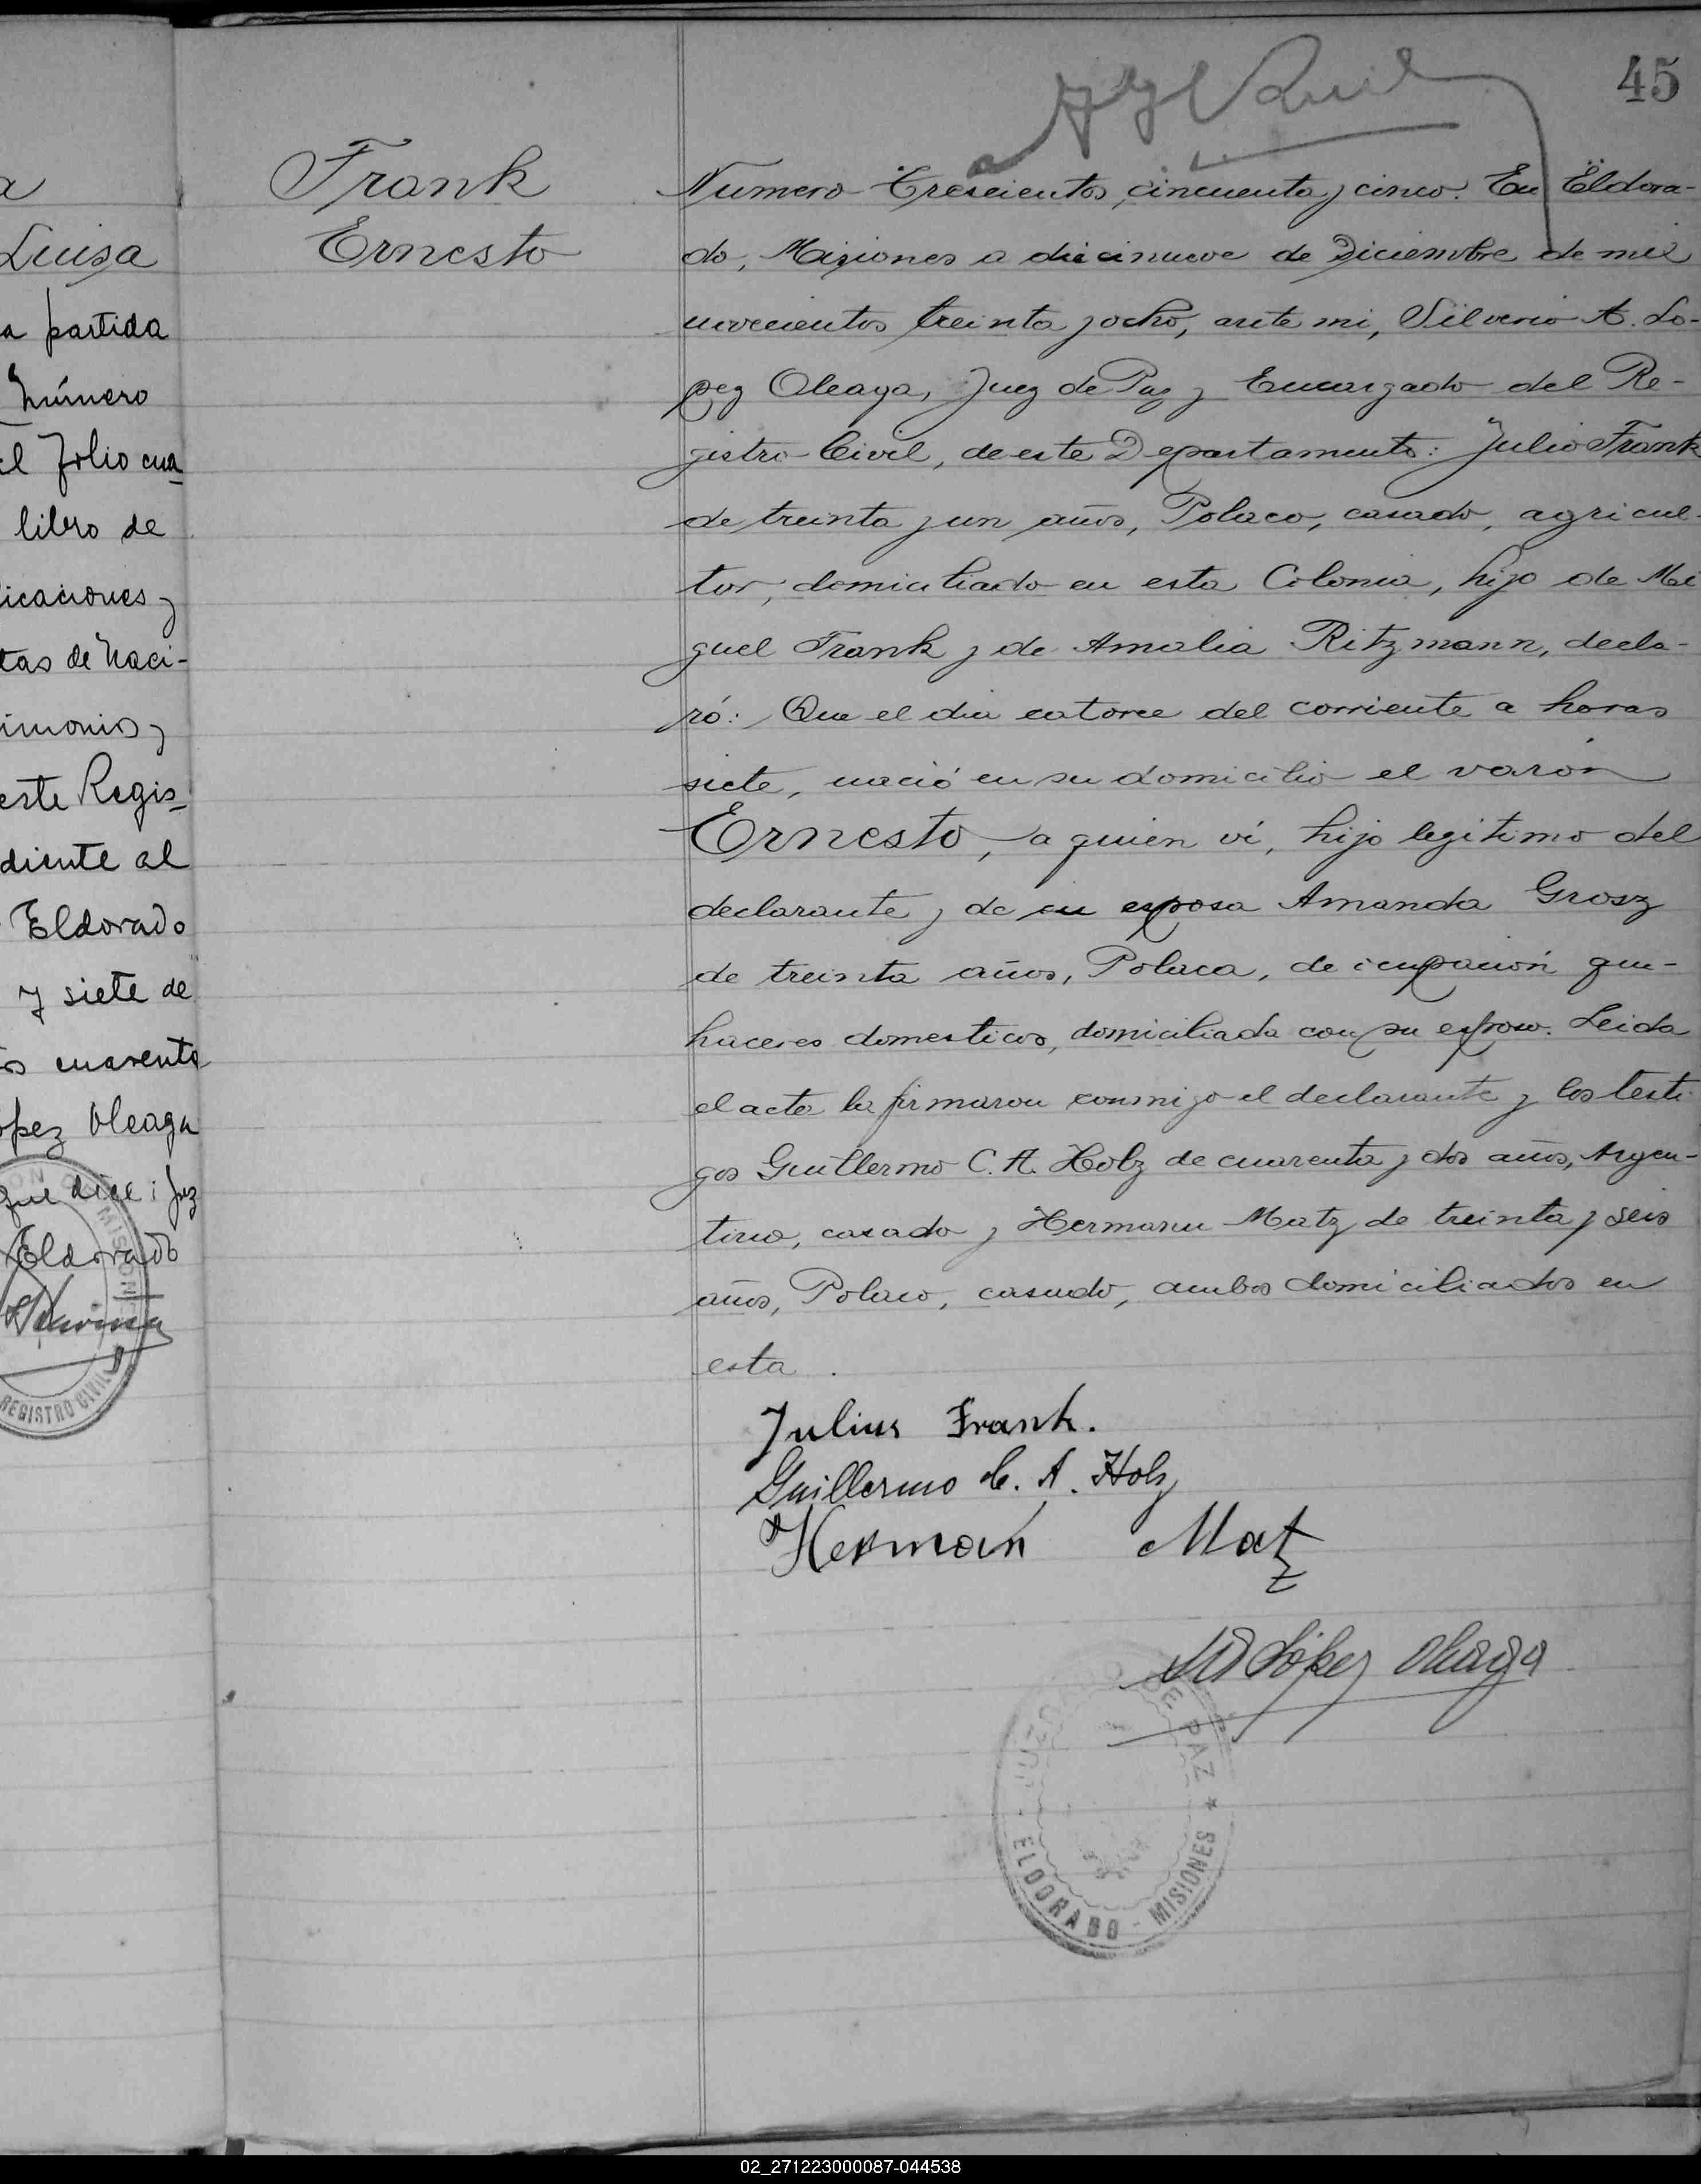 45
a
Luisa
a partida
Número
el folio cua
libro de
licaciones y
tas de Naci-
imonio y
este Regis-
diente al
Eldorado
y siete de
os cuarenta
opez Oleaga
que dice: Juez
Eldorado
MISIONES
REGISTRO CIVIL
Frank
Ernesto
Numero Trescientos cincuenta y cinco. En Eldora-
do, Misiones a diecinueve de Diciembre de mil
novecientos treinta y ocho, ante mi, Silverio A. Lo-
pez Oleaga, Juez de Paz y Encargado del Re-
gistro Civil, de este Departamento: Julio Frank
de treinta y un años, Polaco, casado, agricul-
tor, domiciliado en esta Colonia, hijo de Mi
guel Frank y de Amalia Ritzmann, decla-
ró: Que el dia catorce del corriente a horas
siete, nació en su domicilio el varón
Ernesto, a quien ví, hijo legitimo del
declarante y de su esposa Amanda Grosz
de treinta años, Polaca, de ocupación que-
haceres domesticos, domiciliada con su esposo. Leida
el acta la firmaron conmigo el declarante y los testi
gos Guillermo C. A. Holz de cuarenta y dos años, Argen-
tino, casado y Hermann Matz de treinta y seis
años, Polaco, casado, ambos domiciliados en
esta.
Julius Frank.
Guillermo C. A. Holz
Herman Matz
López Oleaga
JUZGADO DE PAZ
ELDORADO - MISIONES
02_271223000087-044538